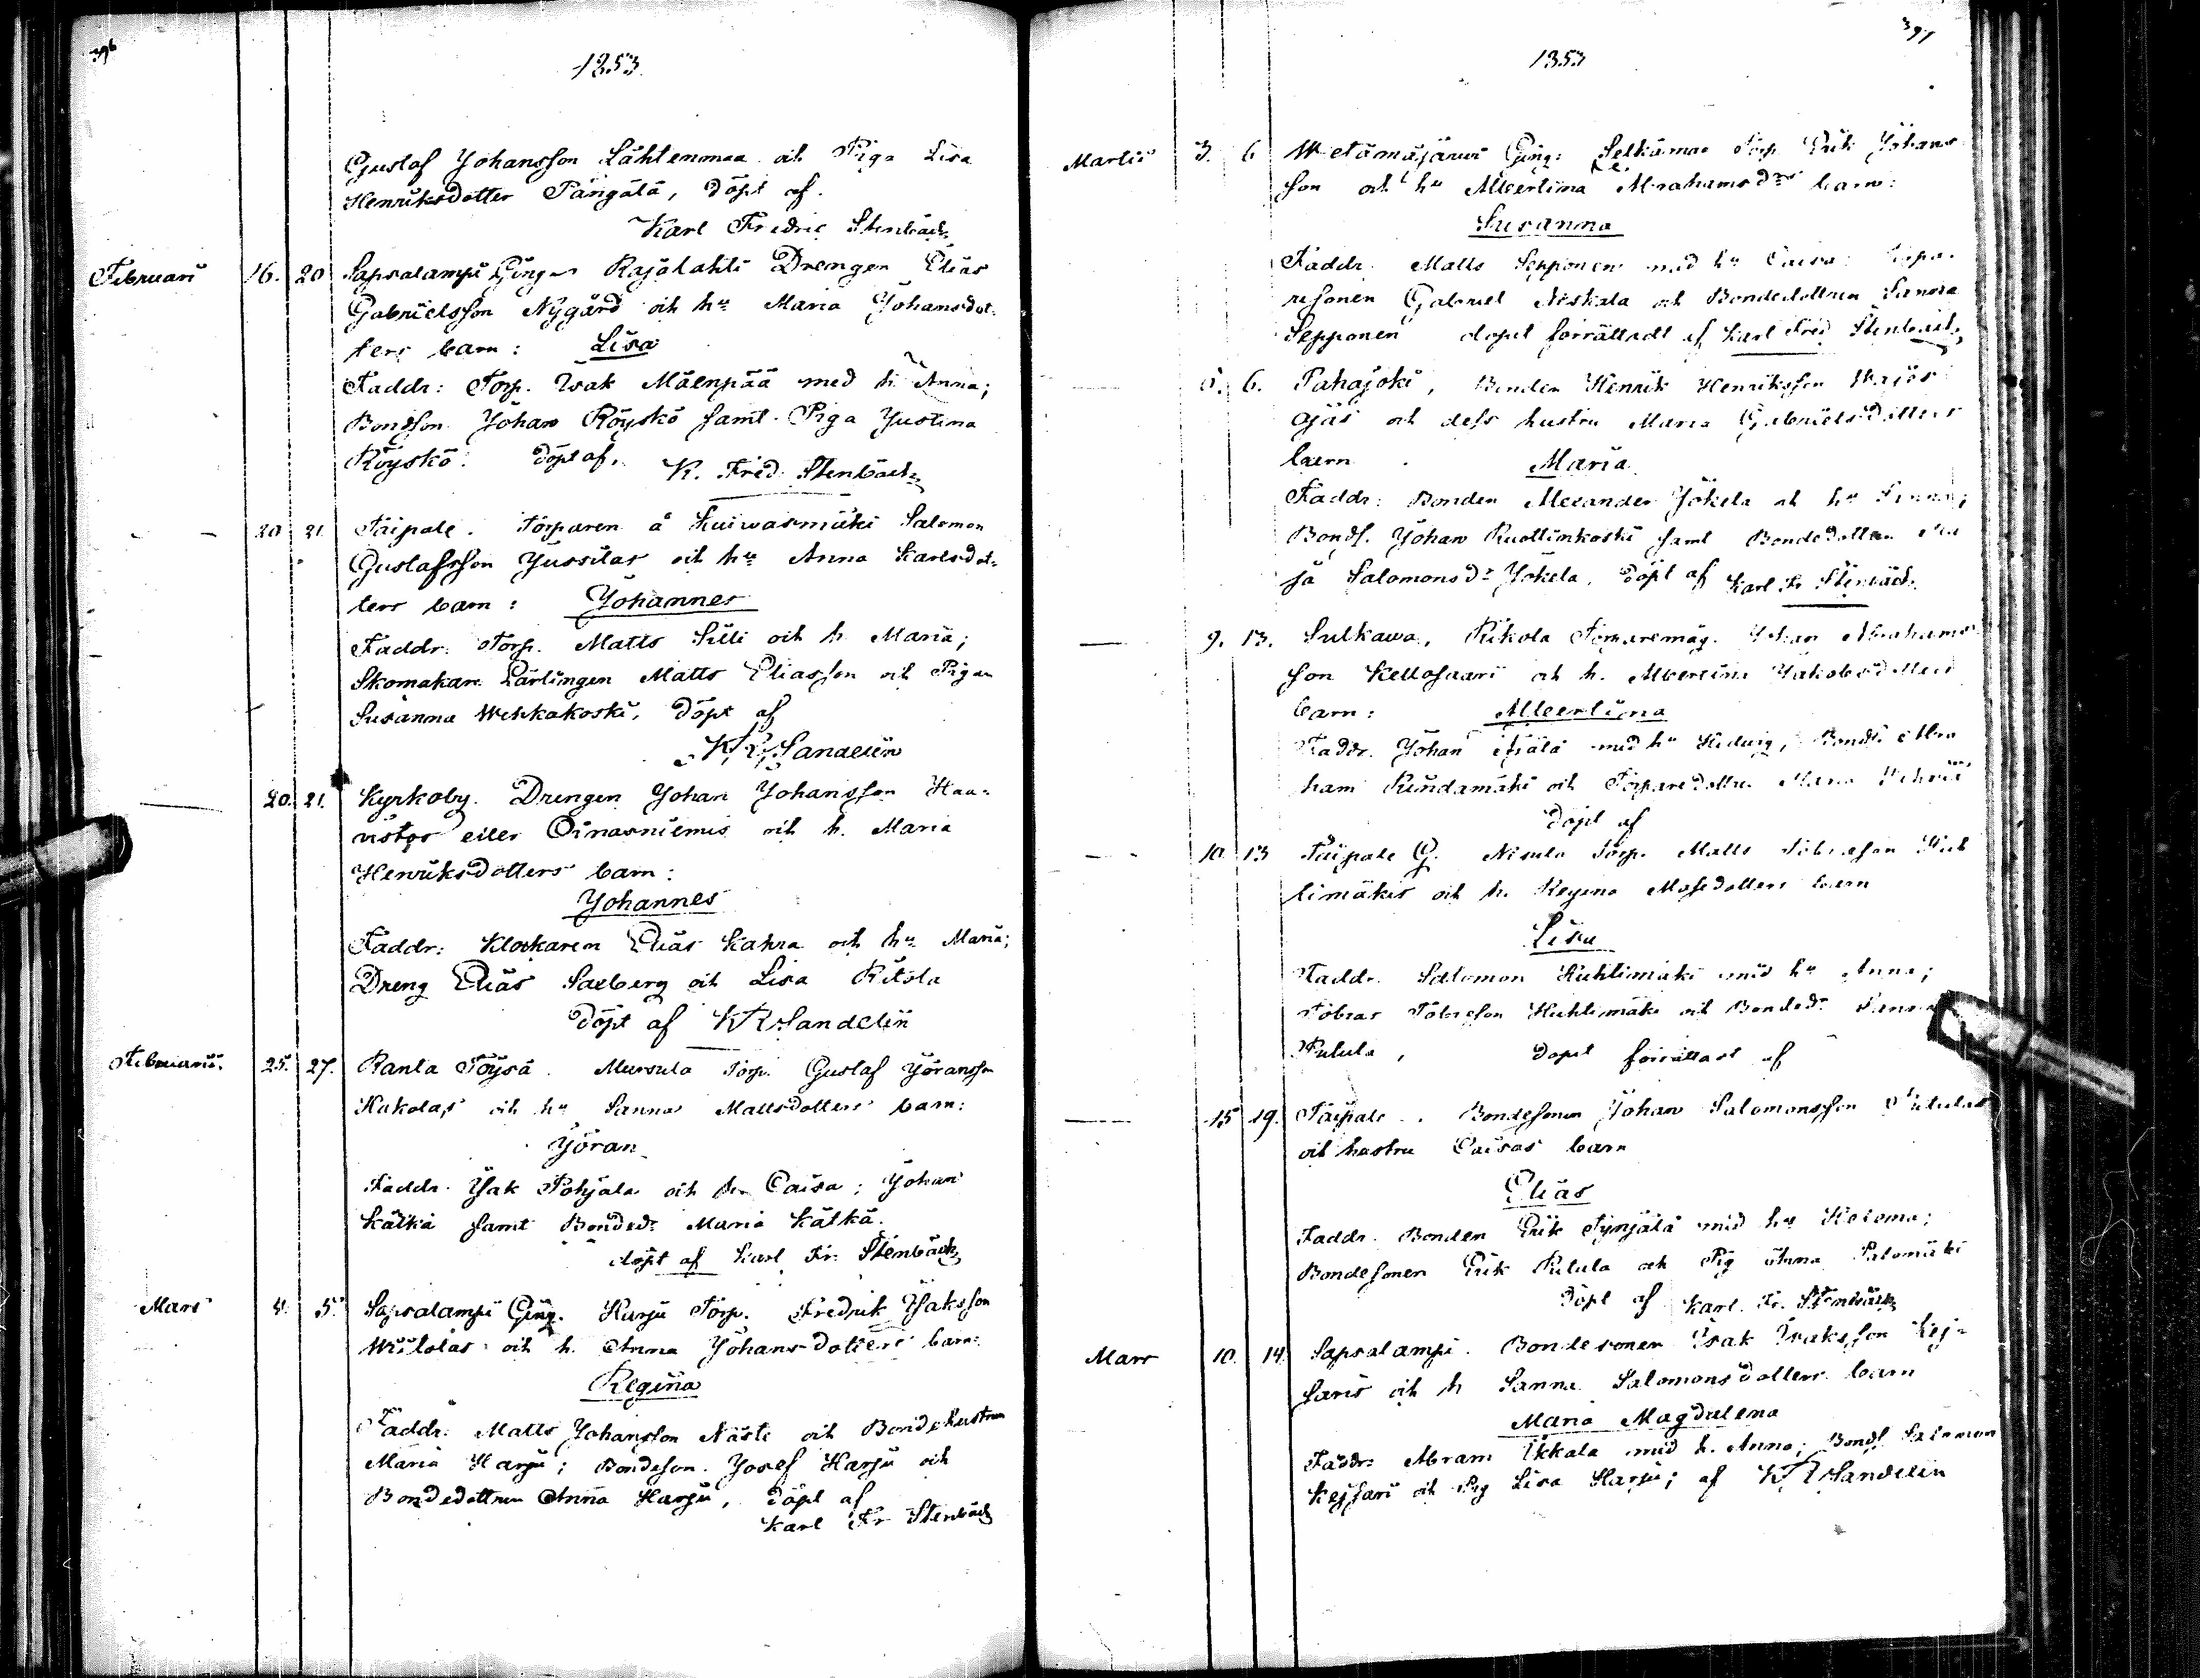 396
1853
Gustaf Johansson Lähtenmaa och Piga Lisa
Henriksdotter Pängälä, döpt af
Karl Fredric Stenbäck
Februari 16. 20 Sapsalampi Ging. Rajalahti Drengen Elias
Gabrielsson Nygård och hu Maria Johansdot-
ters barn: Lisa
Faddr: Torp. Isak Mäenpää med h. Anna;
Bondson Johan Röyskö samt Piga Justina
Röyskö. döpt af. K. Fred Stenbäck
— 20 21. Taipale. Torparen å Kuiwasmäki Salomon
Gustafsson Jussilas och hu Anna Karlsdot-
ters barn: Johannes
Faddr: Torp. Matts Silli och h Maria;
Skomakare Lärlingen Matts Eliasson och Pigan
Susanna Wehkakoski, döpt af
KR Sandelin
— 20. 21. Kyrkoby. Drengen Johan Johansson Haa-
ristos eller Oinasniemis och h. Maria
Henriksdotters barn:
Johannes
Faddr: Klockaren Elias Kahra och hu Maria;
Dreng Elias Saxberg och Lisa Ritola
döpt af KR Sandelin
Februarii. 25. 27. Ranta Töysä. Mursula Torp. Gustaf Jöransson
Hakolas och hu Sanna Mattsdotters barn:
Jöran
Faddr. Isak Pohjala och hu Caisa; Johan
Kätkä samt Bonded: Maria Kätkä.
döpt af Karl Fr. Stenbäck
Mars 4. 5. Sapsalampi Ging. Harju Torp. Fredrik Isaksson
Wiitalas och h. Anna Johansdotters barn:
Regina
Faddr: Matts Johansson Nästi och Bondehustrun
Maria Harju; Bondeson. Josef Harju och
Bondedottren Anna Harju, döpt af
Karl Fr Stenbäck
397
1853
Martii 3. 6 Wetämäjärwi Ging: Selkämaa Torp. Erik Johans
son och hu Albertina Abrahamsdrs barn:
Susanna
Faddr. Matts Sepponen med hu Caisa: Torpa-
resonen Gabriel Niskala och Bondedottren Sanna
Sepponen dopet förrättadt af Karl Fred Stenbäck
— 6. Pahajoki, Bonden Henrik Henriksson
ojas och dess hustru Maria Gabrielsdotters
barn Maria
Faddr: Bonden Alexander Jokela och hu
Bonds. Johan Ruottinkoski samt Bondedottren
sa Salomonsdr Jokela, döpt af Karl Fr Stenbäck
— 9. 13. Sulkawa, Riikola Torparemåg. Johan Abrahams
son Kellosaari och h. Albertina Jakobsdotters
barn: Albertina
Faddr. Johan med hu Hedwig, Bonds Abra
ham Rindamäki och Torparedottren Maria
döpt af
— 10. 13 Taipale G. Nisula Torp. Matts Tobiasson Huh
timäkis och h. Regina Matsdotters barn
Lisa
Faddr. Salomon Huhtimäki med hu Anna;
Tobias Tobiasson Huhtimäki och Bonded: Sanna
Pulula, dopet förrättadt af
— 15 19. Taipale. Bondesonen Johan Salomonsson Pululas
och hustru Caisas barn
Elias
Faddr. Bonden Erik Tynjälä med hu Helena;
Bondesonen Erik Pulula och Pig Anna Salomäki
döpt af Karl. Fr. Stenbäck
Mars 10. 14. Sapsalampi. Bondesonen Isak Isaksson Kej-
saris och h Sanna Salomonsdotters barn
Maria Magdalena
Faddr: Abram Ikkala med h. Anna; Bonds Salomon
Kejsari och Pig Lisa Harju; af KR Sandelin